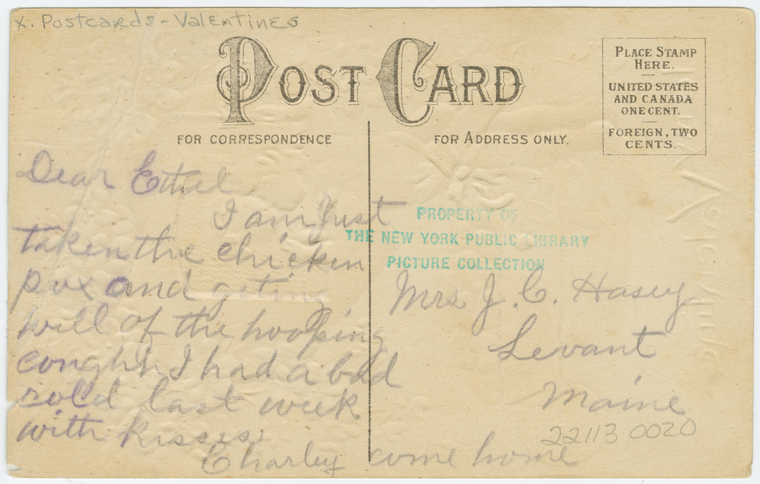 x. Postcards - Valentines
POST CARD
FOR CORRESPONDENCE
FOR ADDRESS ONLY.
PLACE STAMP
HERE.
UNITED STATES
AND CANADA
ONE CENT.
FOREIGN, TWO
CENTS.
Dear Ethel,
I am Just
taken the chicken
pox and geting
well of the hooping
cough I had a bad
cold last week
with kisses.
Charley come home
PROPERTY OF
THE NEW YORK PUBLIC LIBRARY
PICTURE COLLECTION
Mrs J. C. Hasey
Levant
Maine
22113 0020